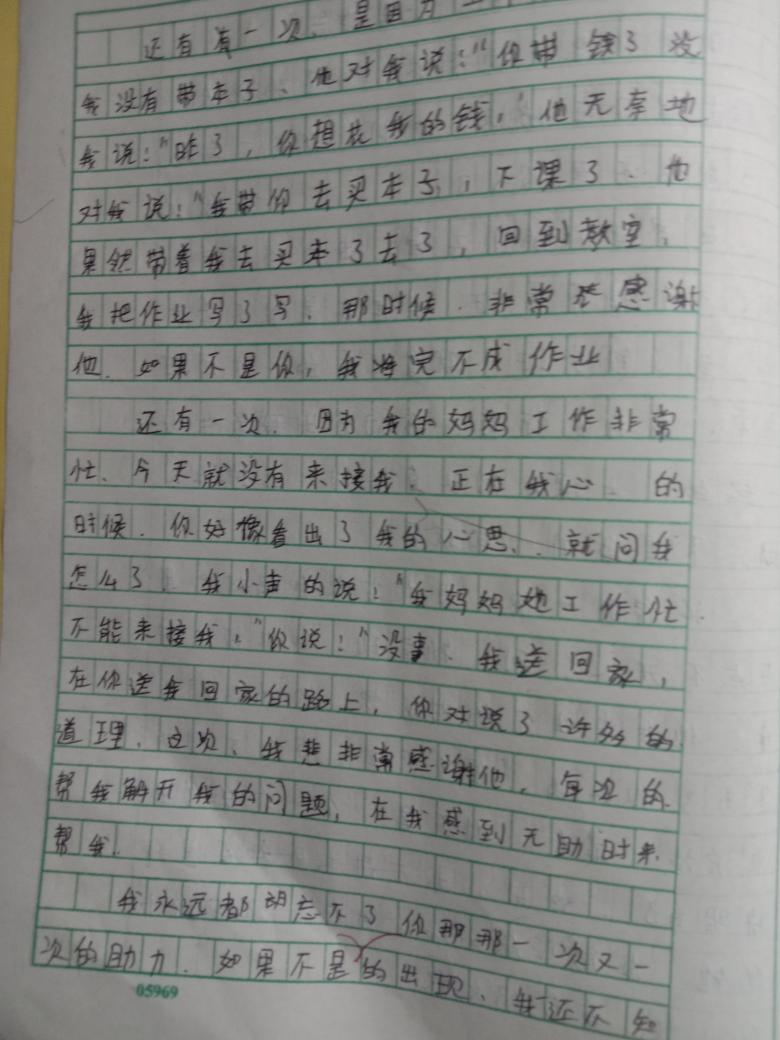 还有有一次、是因为
我没有带本子、他对我说：“你带钱了没
我说：“昨了，你想花我的钱，”他无奈地
对我说：“我带你去买本子，，下课了、他
果然带着我去买本了去了，回到教室，
我把作业写了写、那时候、非常感谢
他、如果不是你，我将完不成作业
还有一次、因为我的妈妈工作非常
忙、今天就没有来接我、正在我心、的
时候、你好像看出了我的心思、、就问我
怎么了、我小声的说：“我妈妈她工作忙、
不能来接我，”你说：“没事、我送回家，
在你送我回家的路上，你对说了许多的
道理、这次、我非常感谢他，每次的
帮我解开我的问题，在我感到无助时来
帮我、
我永远都忘不了你那那一次又一
次的助力、如果不是的出现、我还不知
05969